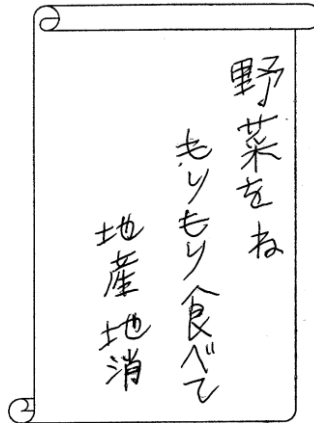 野菜をね
もりもり食べて
地産地消